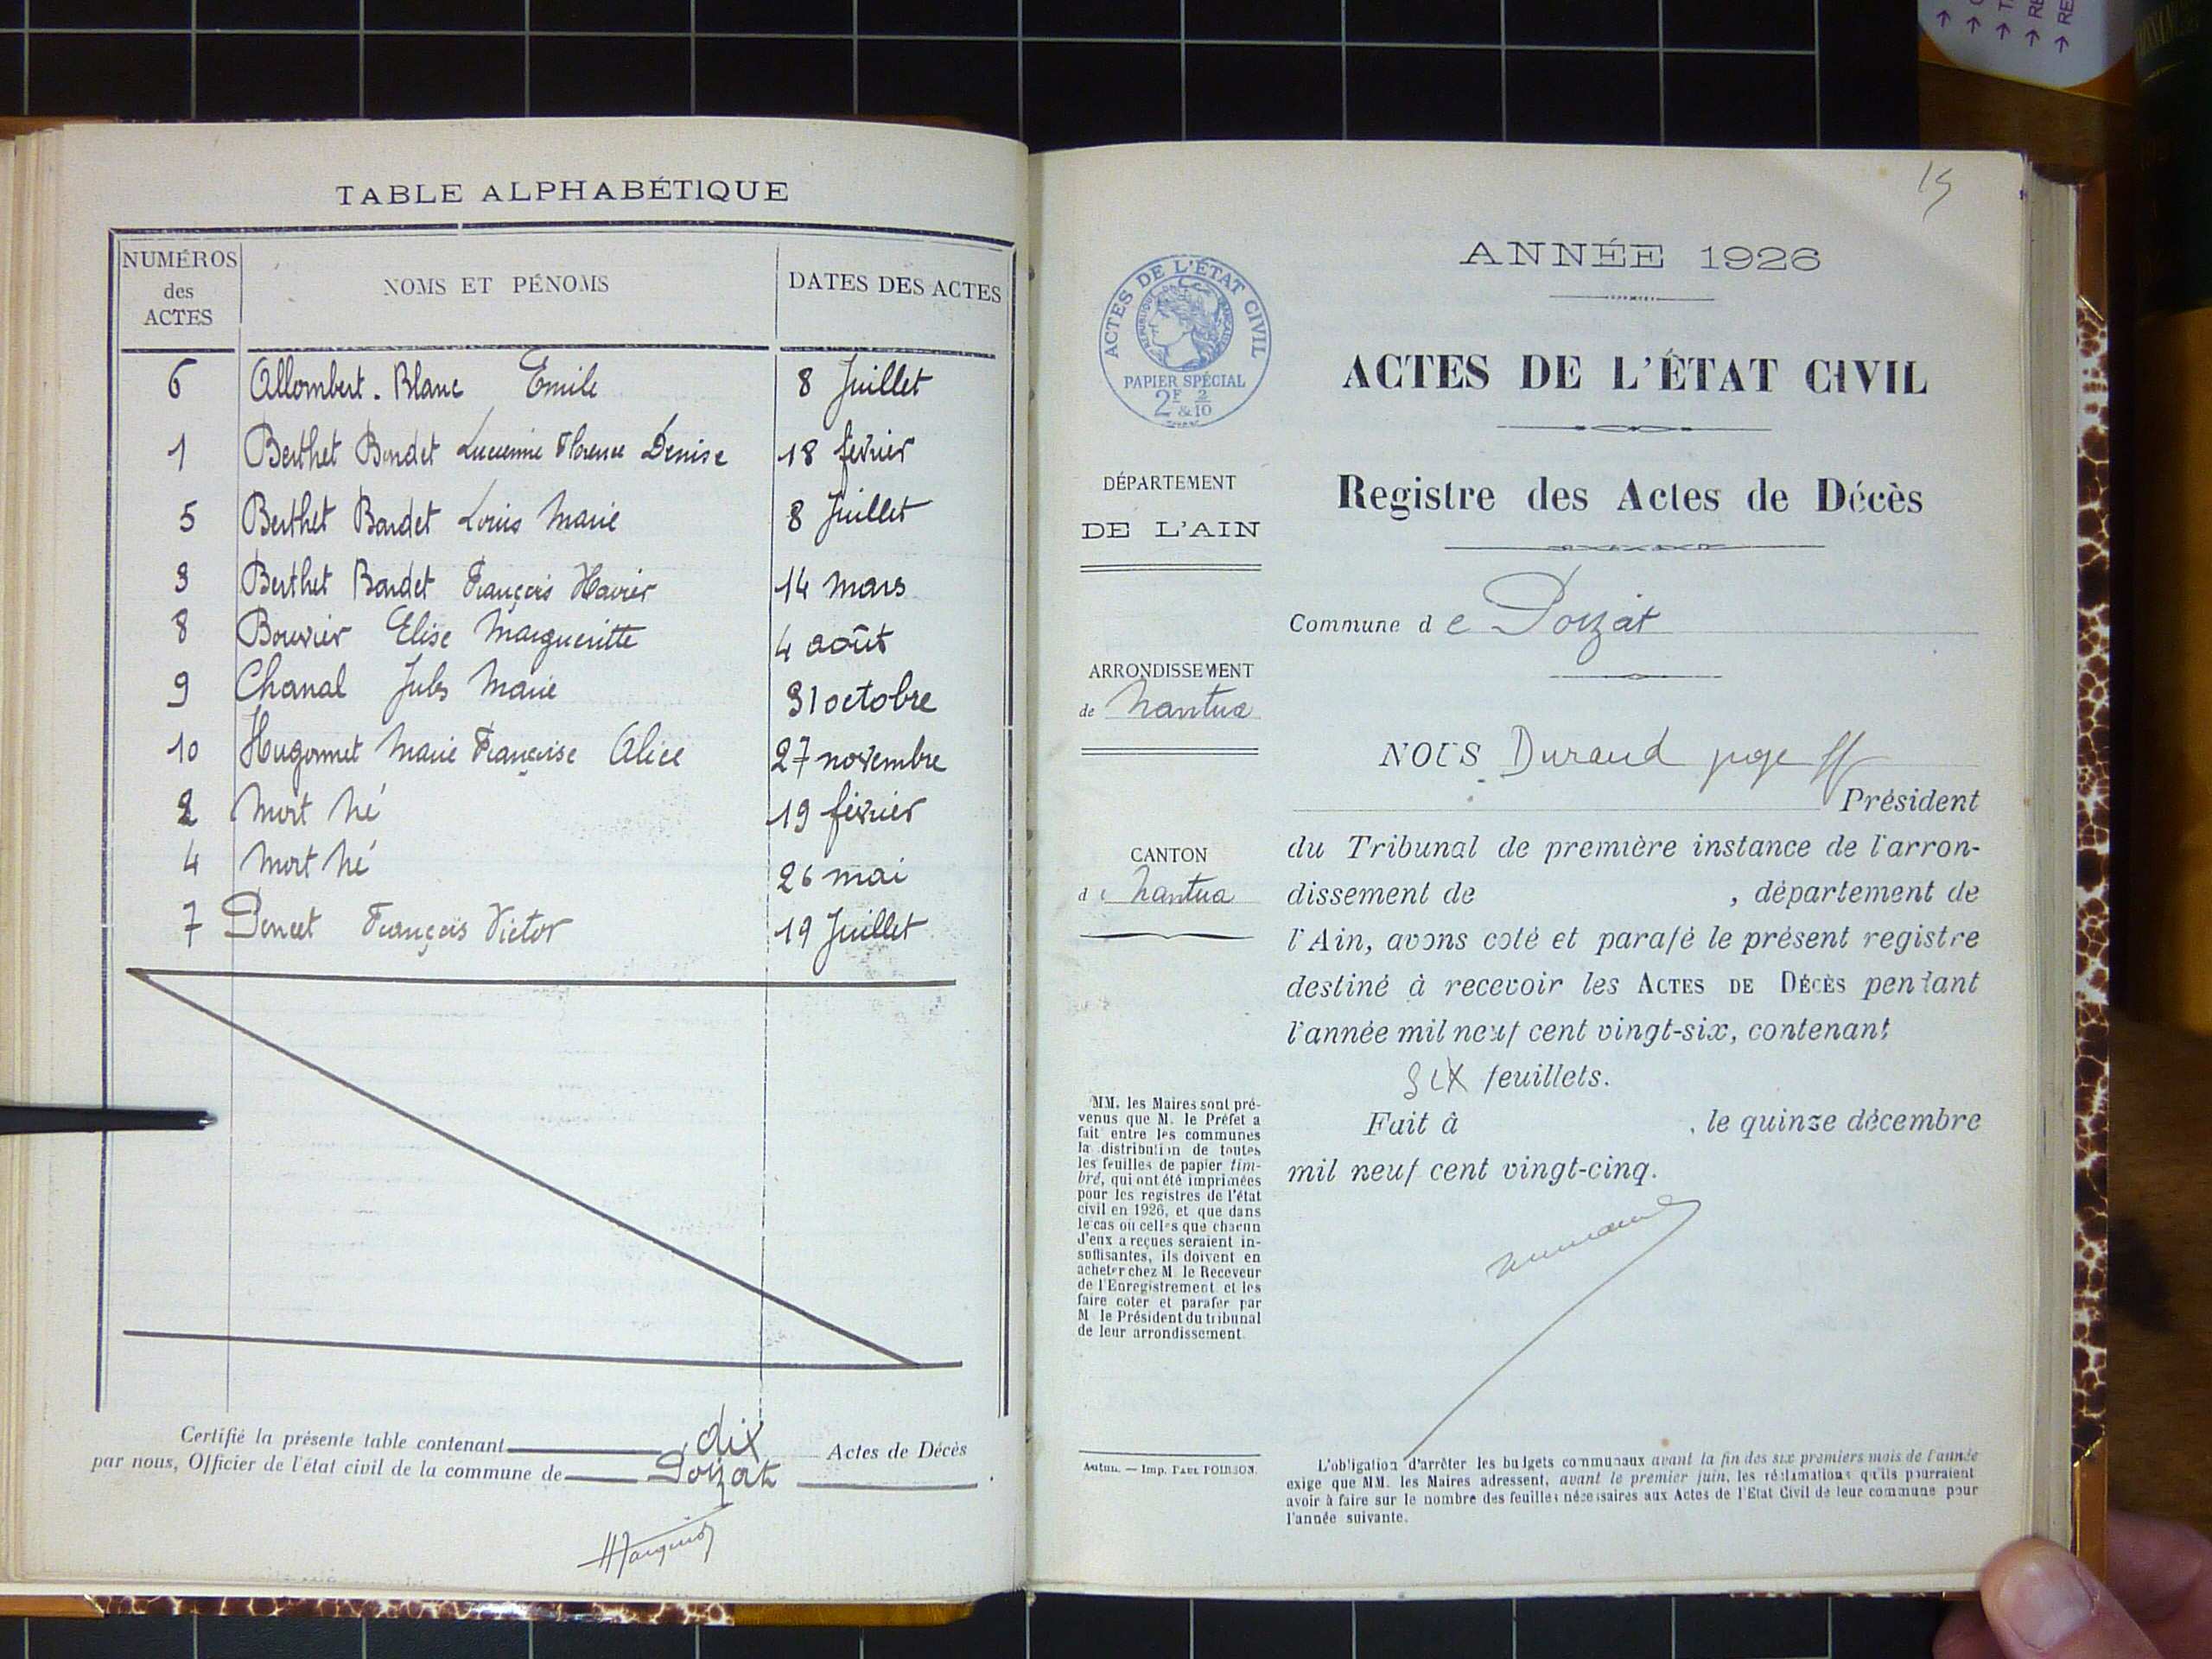 TABLE ALPHABÉTIQUE
NUMÉROS des ACTES
NOMS ET PÉNOMS
DATES DES ACTES
6 Allombert. Blanc Emile 8 Juillet
1 Berthet Bondet Lucienne Florence Denise 18 février
5 Berthet Bondet Louis Marie 8 Juillet
3 Berthet Bondet François Xavier 14 mars
8 Bouvier Elise Margueritte 4 août
9 Chanal Jules Marie 31 octobre
10 Hugonnet Marie Françoise Alice 27 novembre
2 Mort né 19 février
4 Mort né 26 mai
7 Poncet François Victor 19 Juillet
Certifié la présente table contenant dix Actes de Décès
par nous, Officier de l'état civil de la commune de Poizat
15
ANNÉE 1926
ACTES DE L'ÉTAT CIVIL
RÉPUBLIQUE FRANÇAISE
PAPIER SPÉCIAL
2F 2/10
& 10
ACTES DE L'ÉTAT CIVIL
Registre des Actes de Décès
DÉPARTEMENT
DE L'AIN
Commune de Poizat
ARRONDISSEMENT
de Nantua
CANTON
de Nantua
NOUS Durand juge ff
Président
du Tribunal de première instance de l'arron-
dissement de , département de
l'Ain, avons coté et parafé le présent registre
destiné à recevoir les ACTES DE DÉCÈS pendant
l'année mil neuf cent vingt-six, contenant
six feuillets.
Fait à , le quinze décembre
mil neuf cent vingt-cinq.
MM. les Maires sont pré-
venus que M. le Préfet a
fait entre les communes
la distribution de toutes
les feuilles de papier tim-
bré, qui ont été imprimées
pour les registres de l'état
civil en 1926, et que dans
le cas où celles que chacun
d'eux a reçues seraient in-
suffisantes, ils doivent en
acheter chez M. le Receveur
de l'Enregistrement et les
faire coter et parafer par
M. le Président du tribunal
de leur arrondissement.
Autun. — Imp. PAUL POIRSON.
L'obligation d'arrêter les budgets communaux avant la fin des six premiers mois de l'année
exige que MM. les Maires adressent, avant le premier juin, les réclamations qu'ils pourraient
avoir à faire sur le nombre des feuilles nécessaires aux Actes de l'Etat Civil de leur commune pour
l'année suivante.